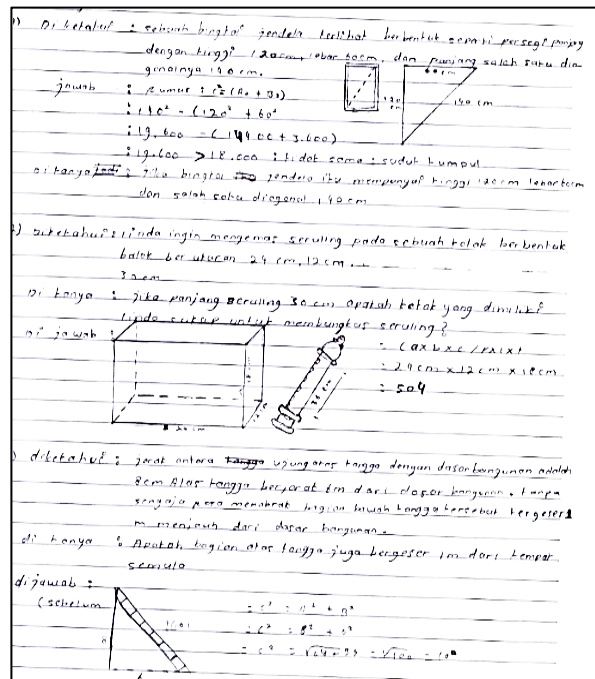 Diketahui : sebuah bingkai jendela terlihat berbentuk seperti persegi panjang
dengan tinggi 120cm, lebar 60cm, dan panjang salah satu dia
gonalnya 140 cm.
60 cm
120
cm
140 cm
jawab : Rumus :
: 140² - (120² + 60²
: 19.600 - (14400 + 3.600)
: 19.600 > 18.000 : tidak sama : sudut tumpul
Ditanya : Jika bingkai jendela itu mempunyai tinggi 120cm lebar
dan salah satu diagonal 140cm
2) Diketahui : linda ingin mengemas seruling pada sebuah kotak berbentuk
balok berukuran 24 cm, 12 cm
Di tanya : jika panjang seruling 30 cm apakah kotak yang dimiliki
linda cukup untuk membungkus seruling?
Di jawab :
: 24cm x 12cm x 18cm
: 504
24 cm
) diketahui : jarak antara ujung atas tangga dengan dasar bangunan adalah
8cm Alas tangga berjarak 6m dari dasar bangunan. tanpa
sengaja para menabrak bagian bawah tangga tersebut tergeser 1
m menjauh dari dasar bangunan.
di tanya : Apakah bagian atas tangga juga bergeser 1m dari tempat
semula
dijawab :
(sebelum